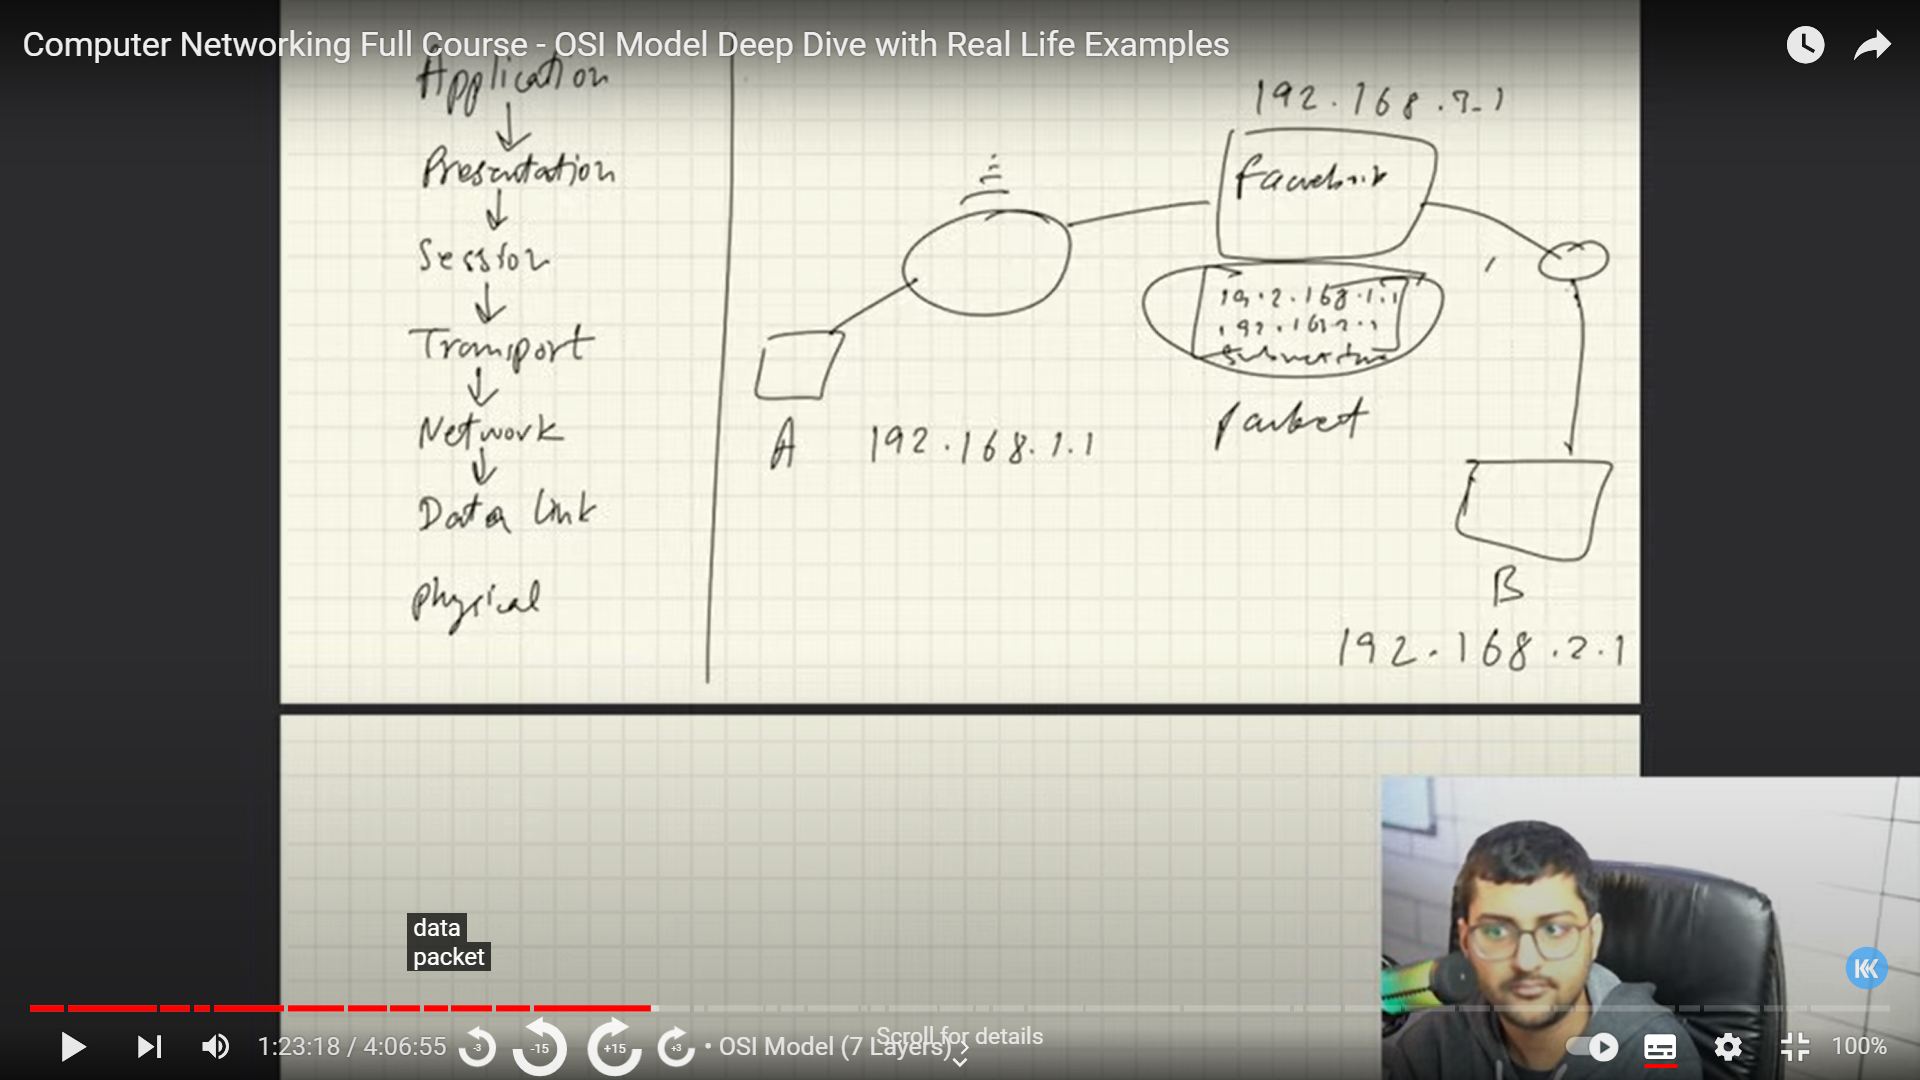 Computer Networking Full Course - OSI Model Deep Dive with Real Life Examples
Application
Presentation
Session
Transport
Network
Data link
physical
192.168.7.1
facebook
192.168.1.1
192.168.2.1
packet
A 192.168.1.1
B
192.168.2.1
data
packet
1:23:18 / 4:06:55
-3
-15
+15
+3
• OSI Model (7 Layers)
Scroll for details
100%